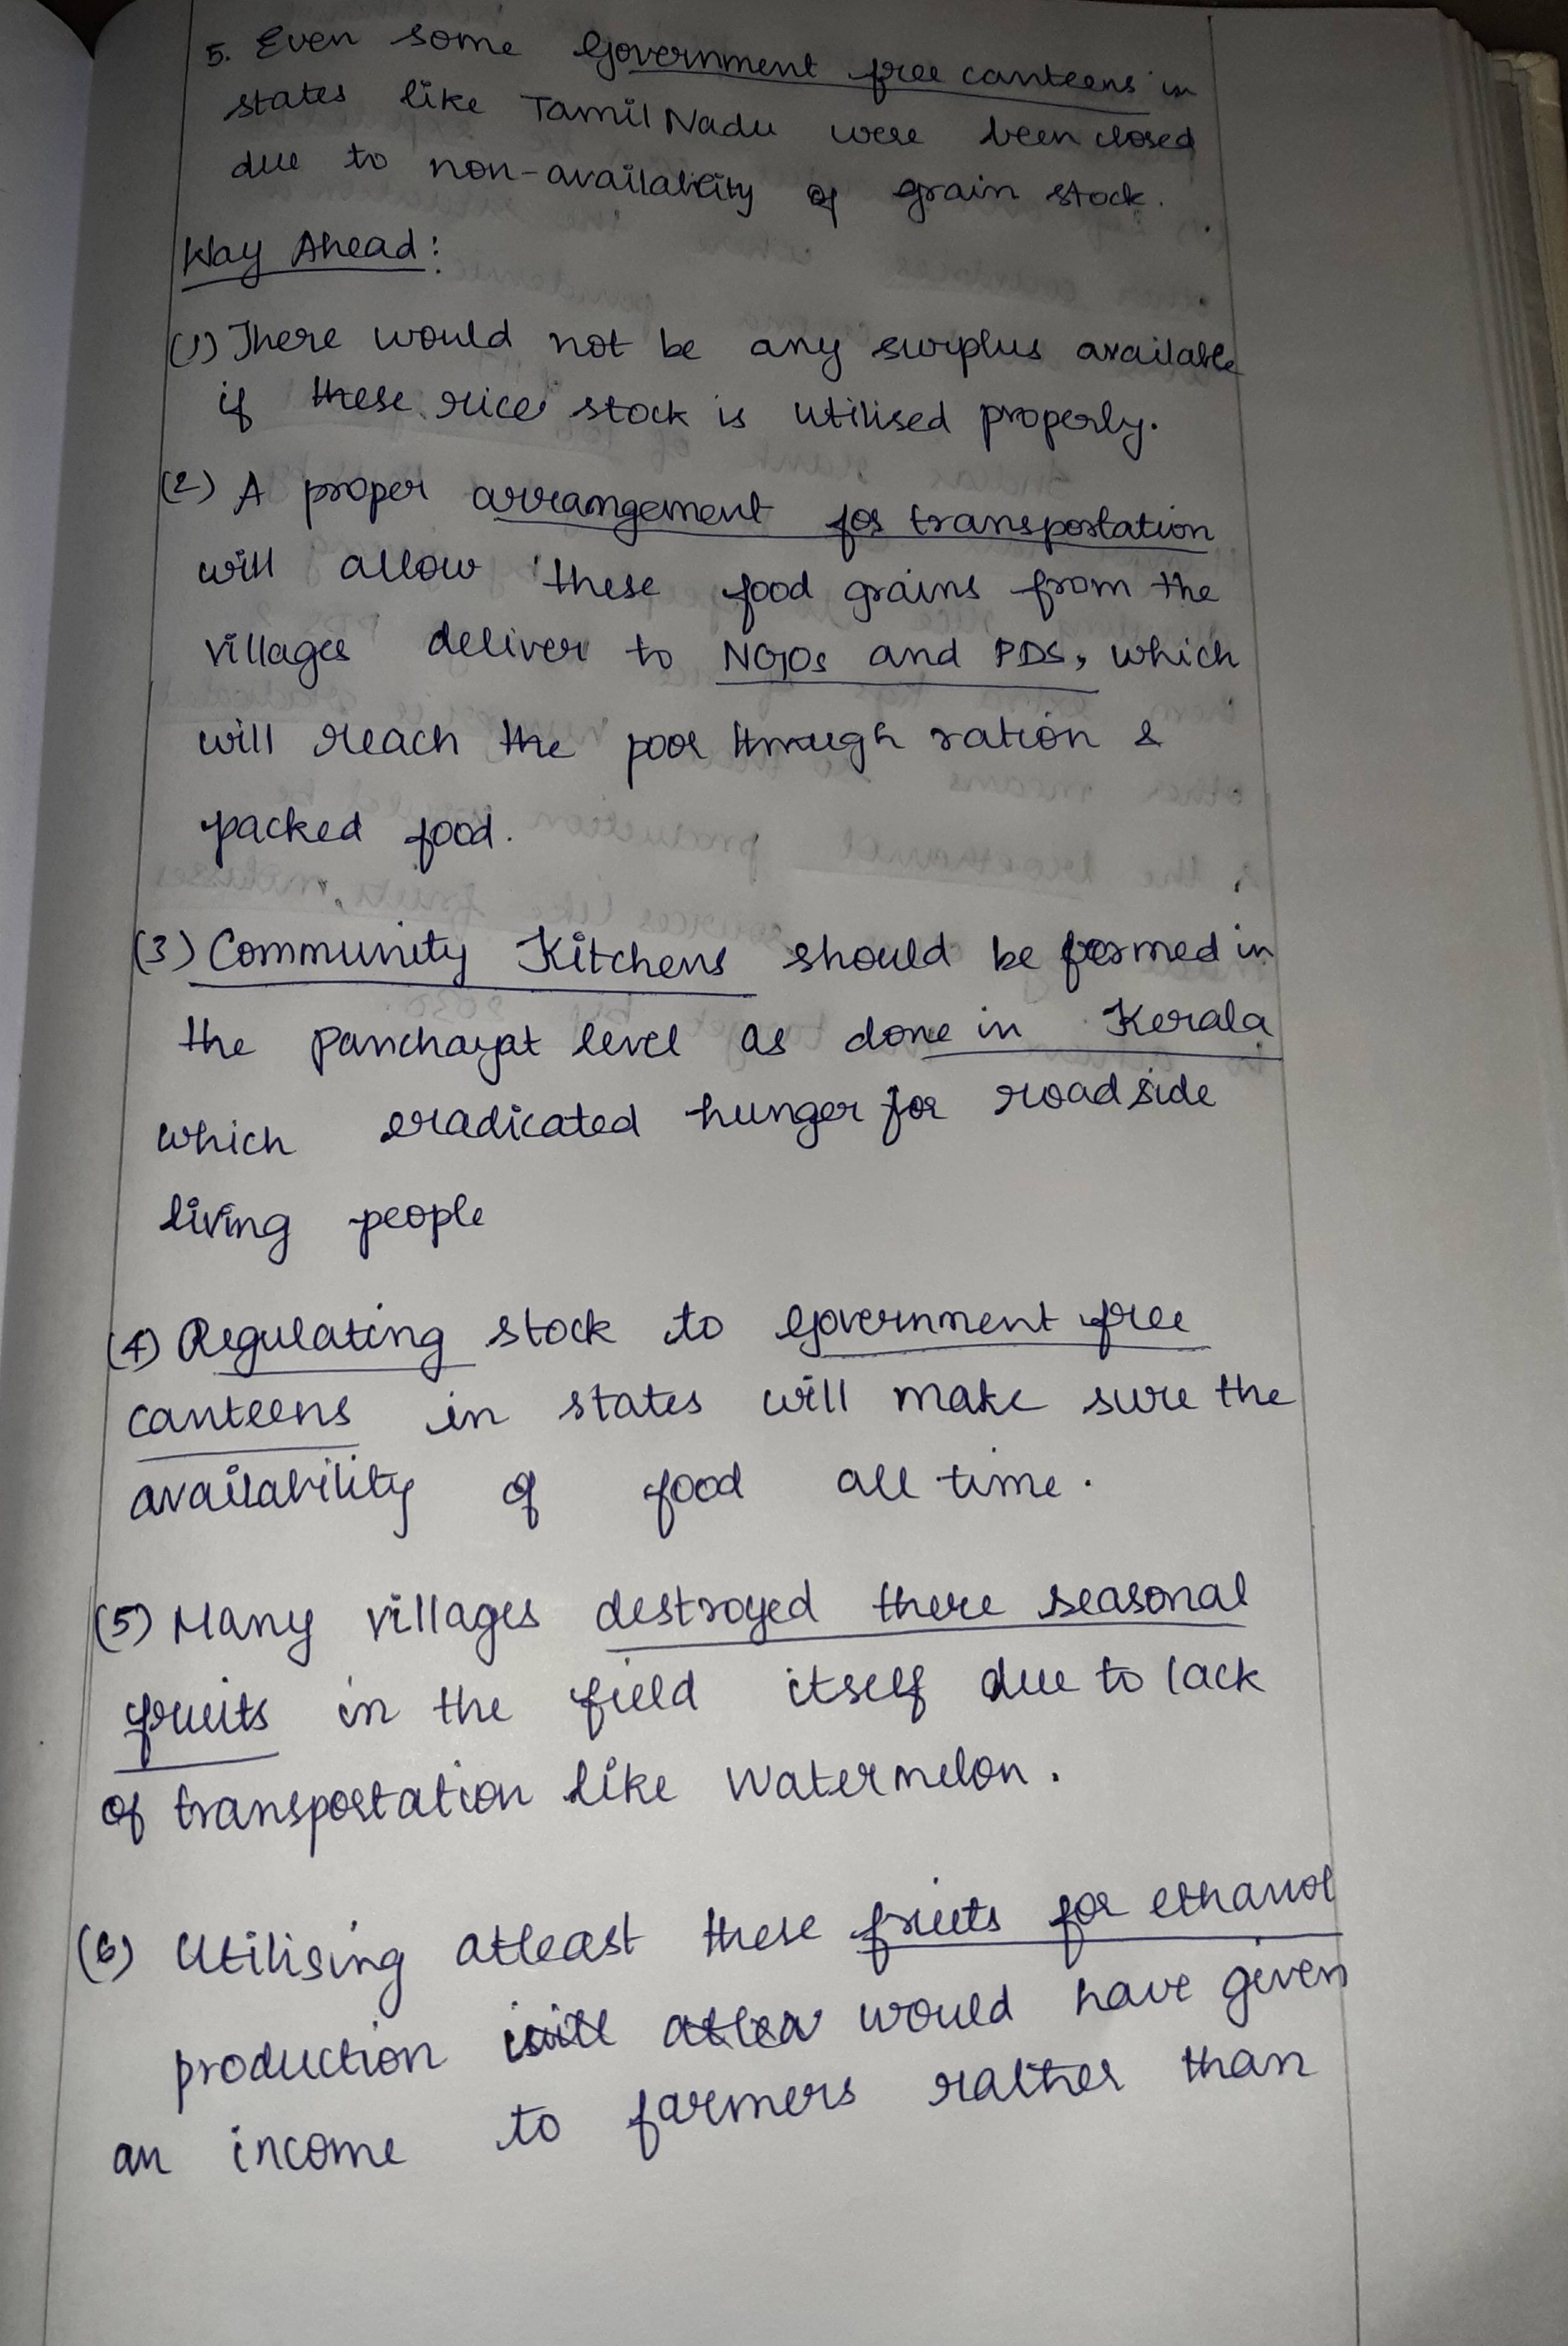 5. Even some Government free canteens in
states like Tamil Nadu were been closed
due to non-availability of grain stock.
Way Ahead:
(1) There would not be any surplus available
if these rice stock is utilised properly.
(2) A proper arrangement for transportation
will allow these food grains from the
villages deliver to NGOs and PDS, which
will reach the poor through ration &
packed food.
(3) Community Kitchens should be formed in
the Panchayat level as done in Kerala
which eradicated hunger for roadside
living people
(4) Regulating stock to Government free
canteens in states will make sure the
availability of food all time.
(5) Many villages destroyed there seasonal
fruits in the field itself due to lack
of transportation like Watermelon.
(6) Utilising atleast these fruits for ethanol
production would have given
an income to farmers rather than